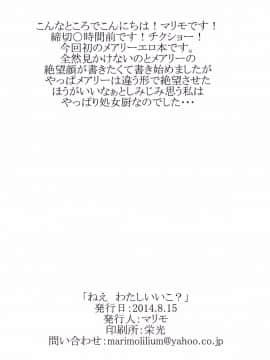 こんなところでこんにちは！マリモです！
締切〇時間前です！チクショー！
今回初のメアリーエロ本です。
全然見かけないのとメアリーの
絶望顔が書きたくて書き始めましたが
やっぱメアリーは違う形で絶望させた
ほうがいいなぁとしみじみ思う私は
やっぱり処女厨なのでした・・・
「ねえ わたしいいこ？」
発行日：2014.8.15
発行人：マリモ
印刷所：栄光
問い合わせ：marimolilium@yahoo.co.jp